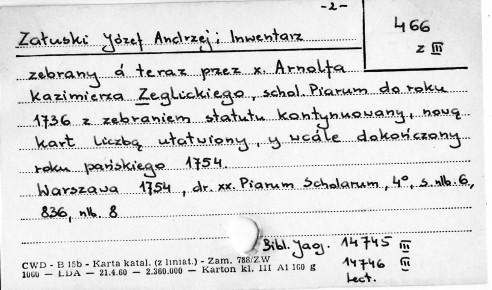 -2-
466
z III
Załuski Józef Andrzej; Inwentarz
zebrany á teraz przez x. Arnolfa
Kazimierza Zeglickiego, schol. Piarum do roku
1736 z zebraniem statutu kontynuowany, nową
kart liczbą ułatwiony, y wcále dokończony
roku pańskiego 1754.
Warszawa 1754, dr. xx. Piarum Scholarum, 4°, s. nlb. 6,
836, nlb. 8
Bibl. Jag. 14745 III
14746 III
Lect.
CWD - B 15b - Karta katal. (z liniat.) - Zam. 788/ZW
1060 — LDA — 21.4.60 — 2.360.000 — Karton kl. III A1 160 g